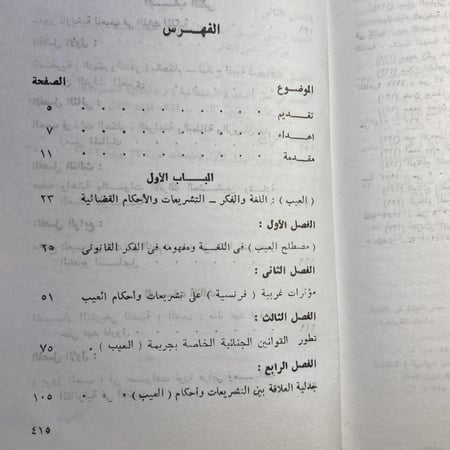 الفهرس
الموضوع الصفحة
تقديم . . . . . . . . . . ٥
إهداء . . . . . . . . . . ٧
مقدمة . . . . . . . . . . ١١
الباب الأول
( العيب ) : اللغة والفكر ــ التشريعات والأحكام القضائية ٢٣
الفصل الأول :
( مصطلح العيب ) فى اللغة ومفهومه فى الفكر القانونى . ٢٥
الفصل الثانى :
مؤثرات غربية ( فرنسية ) على تشريعات وأحكام العيب ٥١
الفصل الثالث :
تطور القوانين الجنائية الخاصة بجريمة ( العيب ) . . ٧٥
الفصل الرابع :
جدلية العلاقة بين التشريعات وأحكام ( العيب ) . . ١٠٥
٤١٥